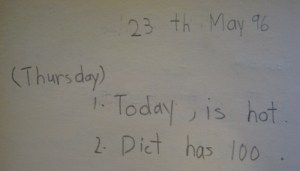 23 th May 96
(Thursday)
1. Today, is hot.
2. Dict has 100.